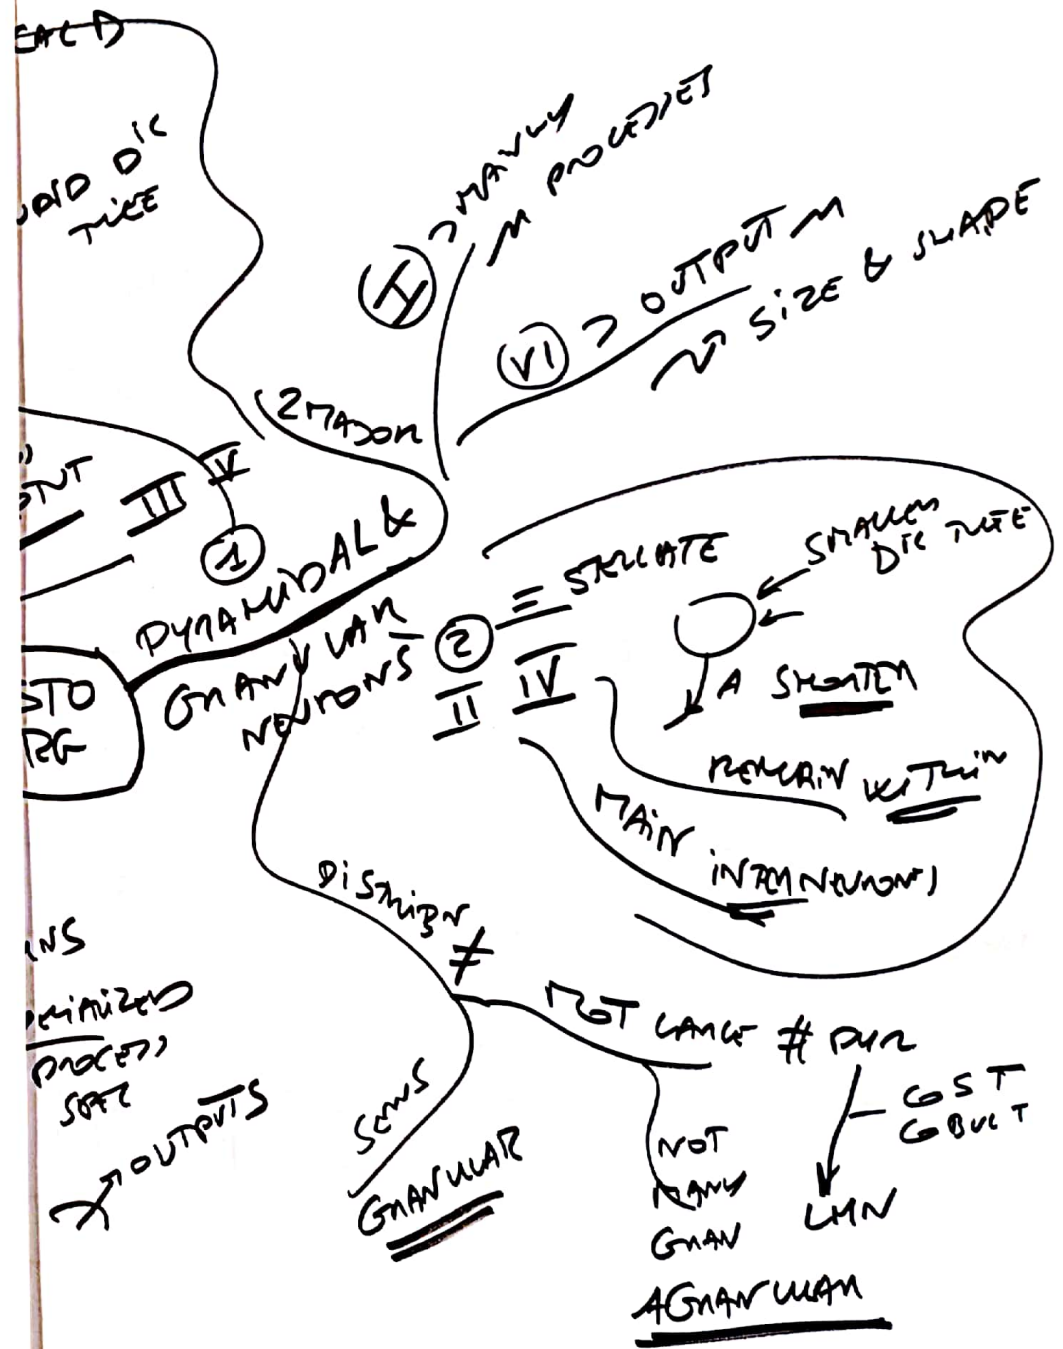 MAINLY
PROCESSES
I
VI > OUTPUT
SIZE & SHAPE
2 MAJOR
III V
1
PYRAMIDAL &
GRANULAR
NEURONS
2 = STELLATE
II IV
SMALLER
DIC TREE
A SHORTER
REMAIN WITHIN
MAIN
INTERNEURONS
DISTRIBN
≠
MOT LARGE # PYR
COST
COBULT
LMN
SENS
GRANULAR
NOT
MANY
GRAN
AGRANULAR
PROCESS
OUTPUTS